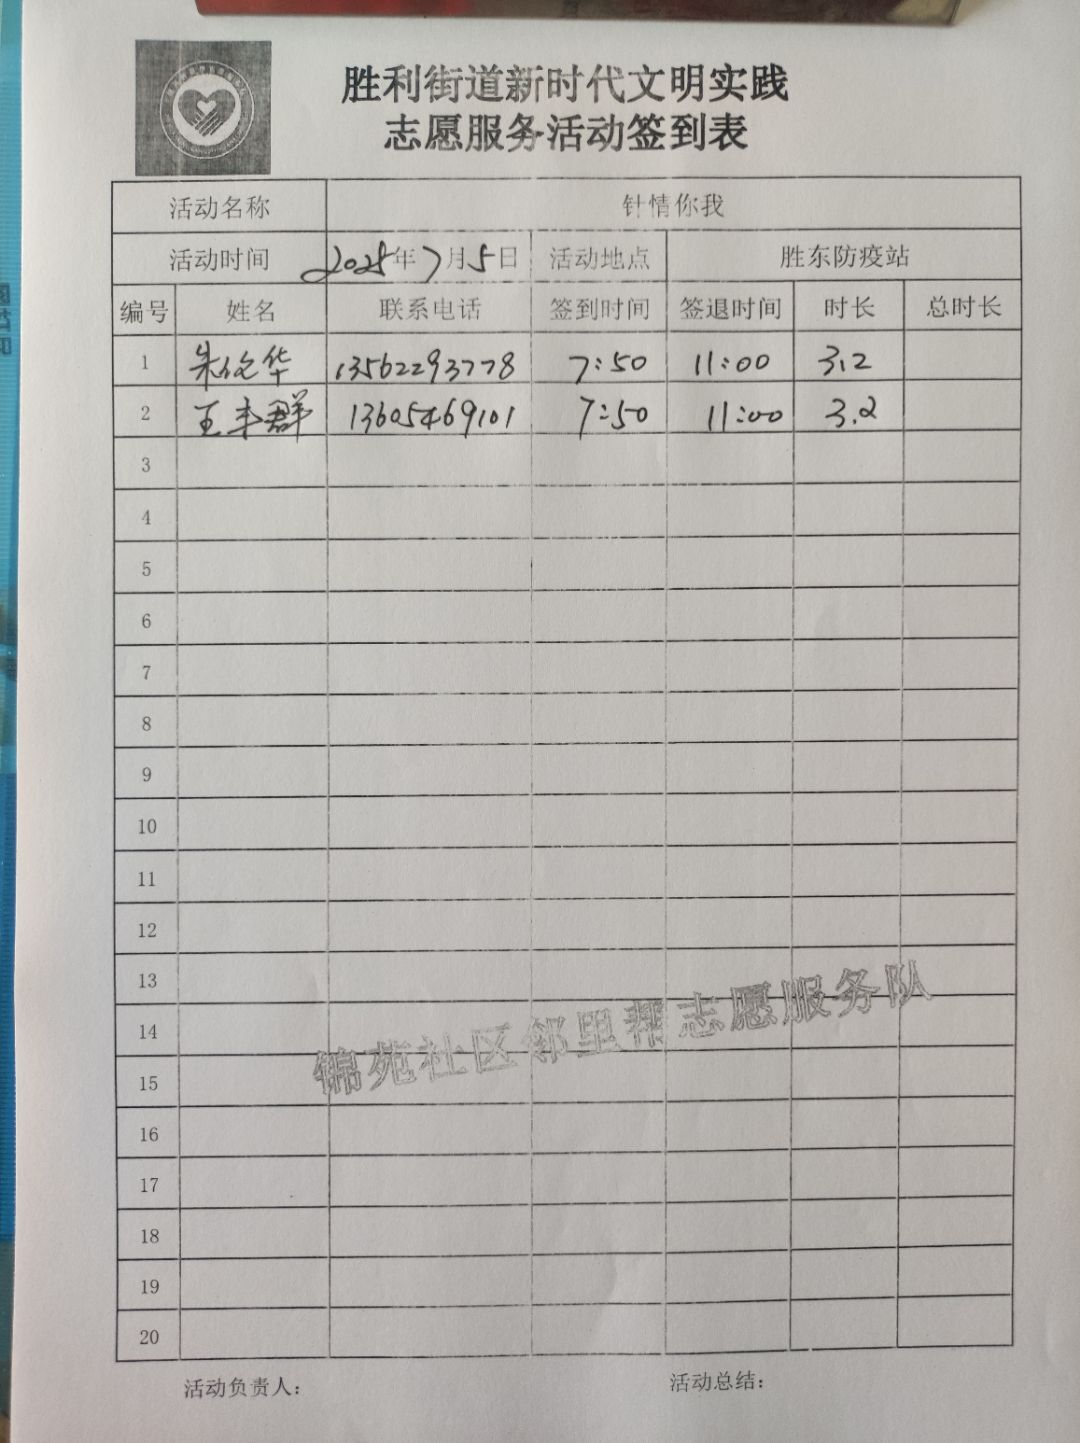 胜利街道新时代文明实践
志愿服务活动签到表
活动名称 针情你我
活动时间 2025年7月5日 活动地点 胜东防疫站
编号 姓名 联系电话 签到时间 签退时间 时长 总时长
1 朱伦华 13562293778 7:50 11:00 3.2
2 王丰群 13605469101 7:50 11:00 3.2
3
4
5
6
7
8
9
10
11
12
13
14
15
16
17
18
19
20
锦苑社区邻里帮志愿服务队
活动负责人： 活动总结：